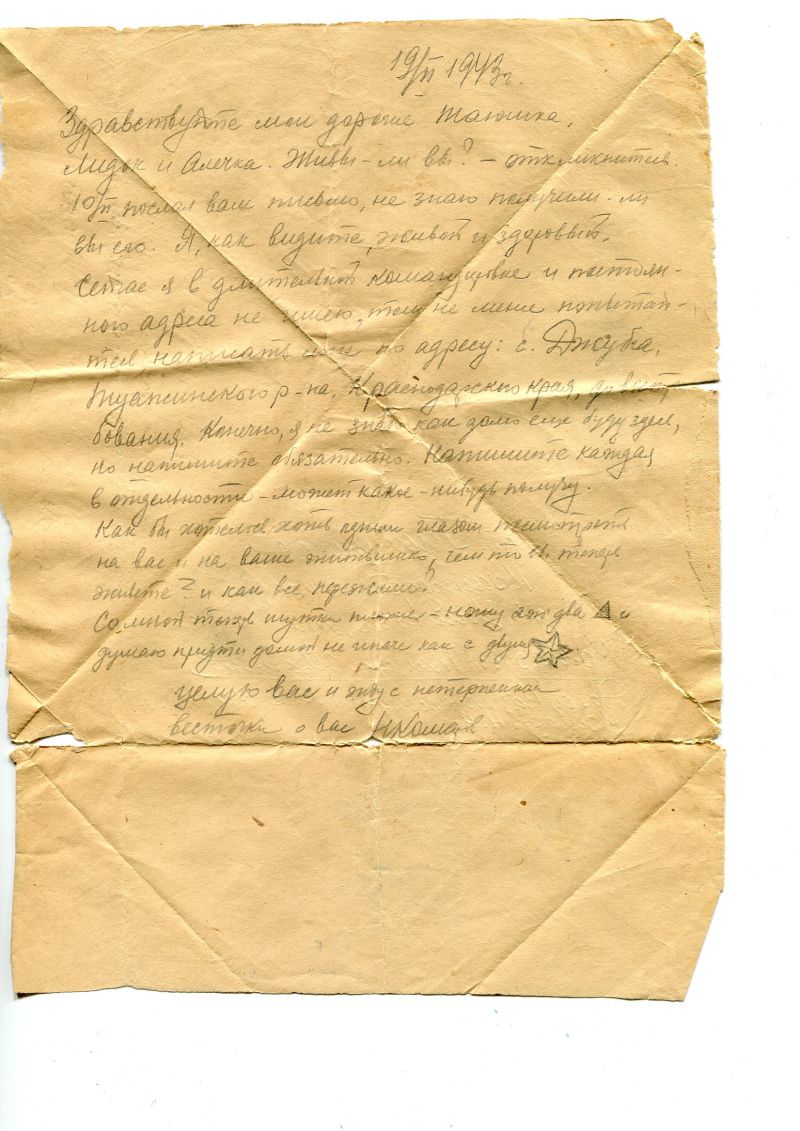 19/II 1943г.
Здравствуйте мои дорогие Таюшка,
Лидок и Алечка. Живы-ли вы? - откликнитесь.
10/II послал вам письмо, не знаю получили-ли
вы его. Я, как видите, живой и здоровый.
Сейчас я в длительной командировке и постоян-
ного адреса не имею, тем не мене попытай-
тесь написать мне по адресу: с. Джубга,
Туапсинского р-на, Краснодарского края, до вост
бования. Конечно, я не знаю как долго еще буду здесь,
но напишите обязательно. Напишите каждая
в отдельности - может какое-нибудь получу.
Как бы хотелось хоть одним глазом посмотреть
на вас и на ваше житьишко, чем то вы теперь
живете? и как все пережили?
Со мной теперь шутки плохие - ношу аж два и
думаю придти домой не иначе как с двумя
целую вас и жду с нетерпением
весточки о вас